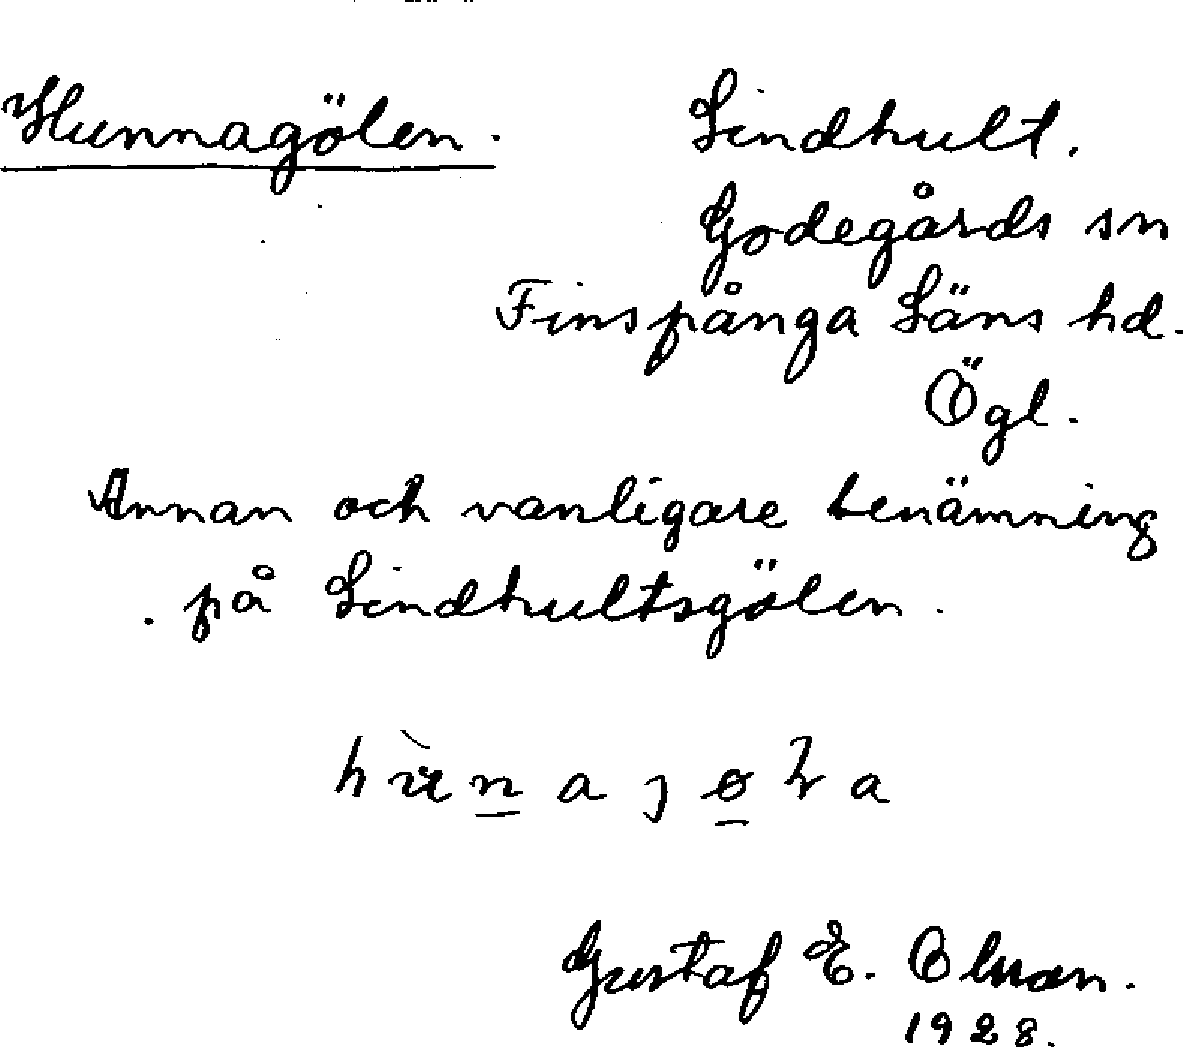 Hunnagölen. Lindhult.
Godegårds sn
Finspånga Läns hd.
Ögl.
Annan och vanligare benämning
på Lindhultsgölen.
Gustaf E. Olsson.
1928.